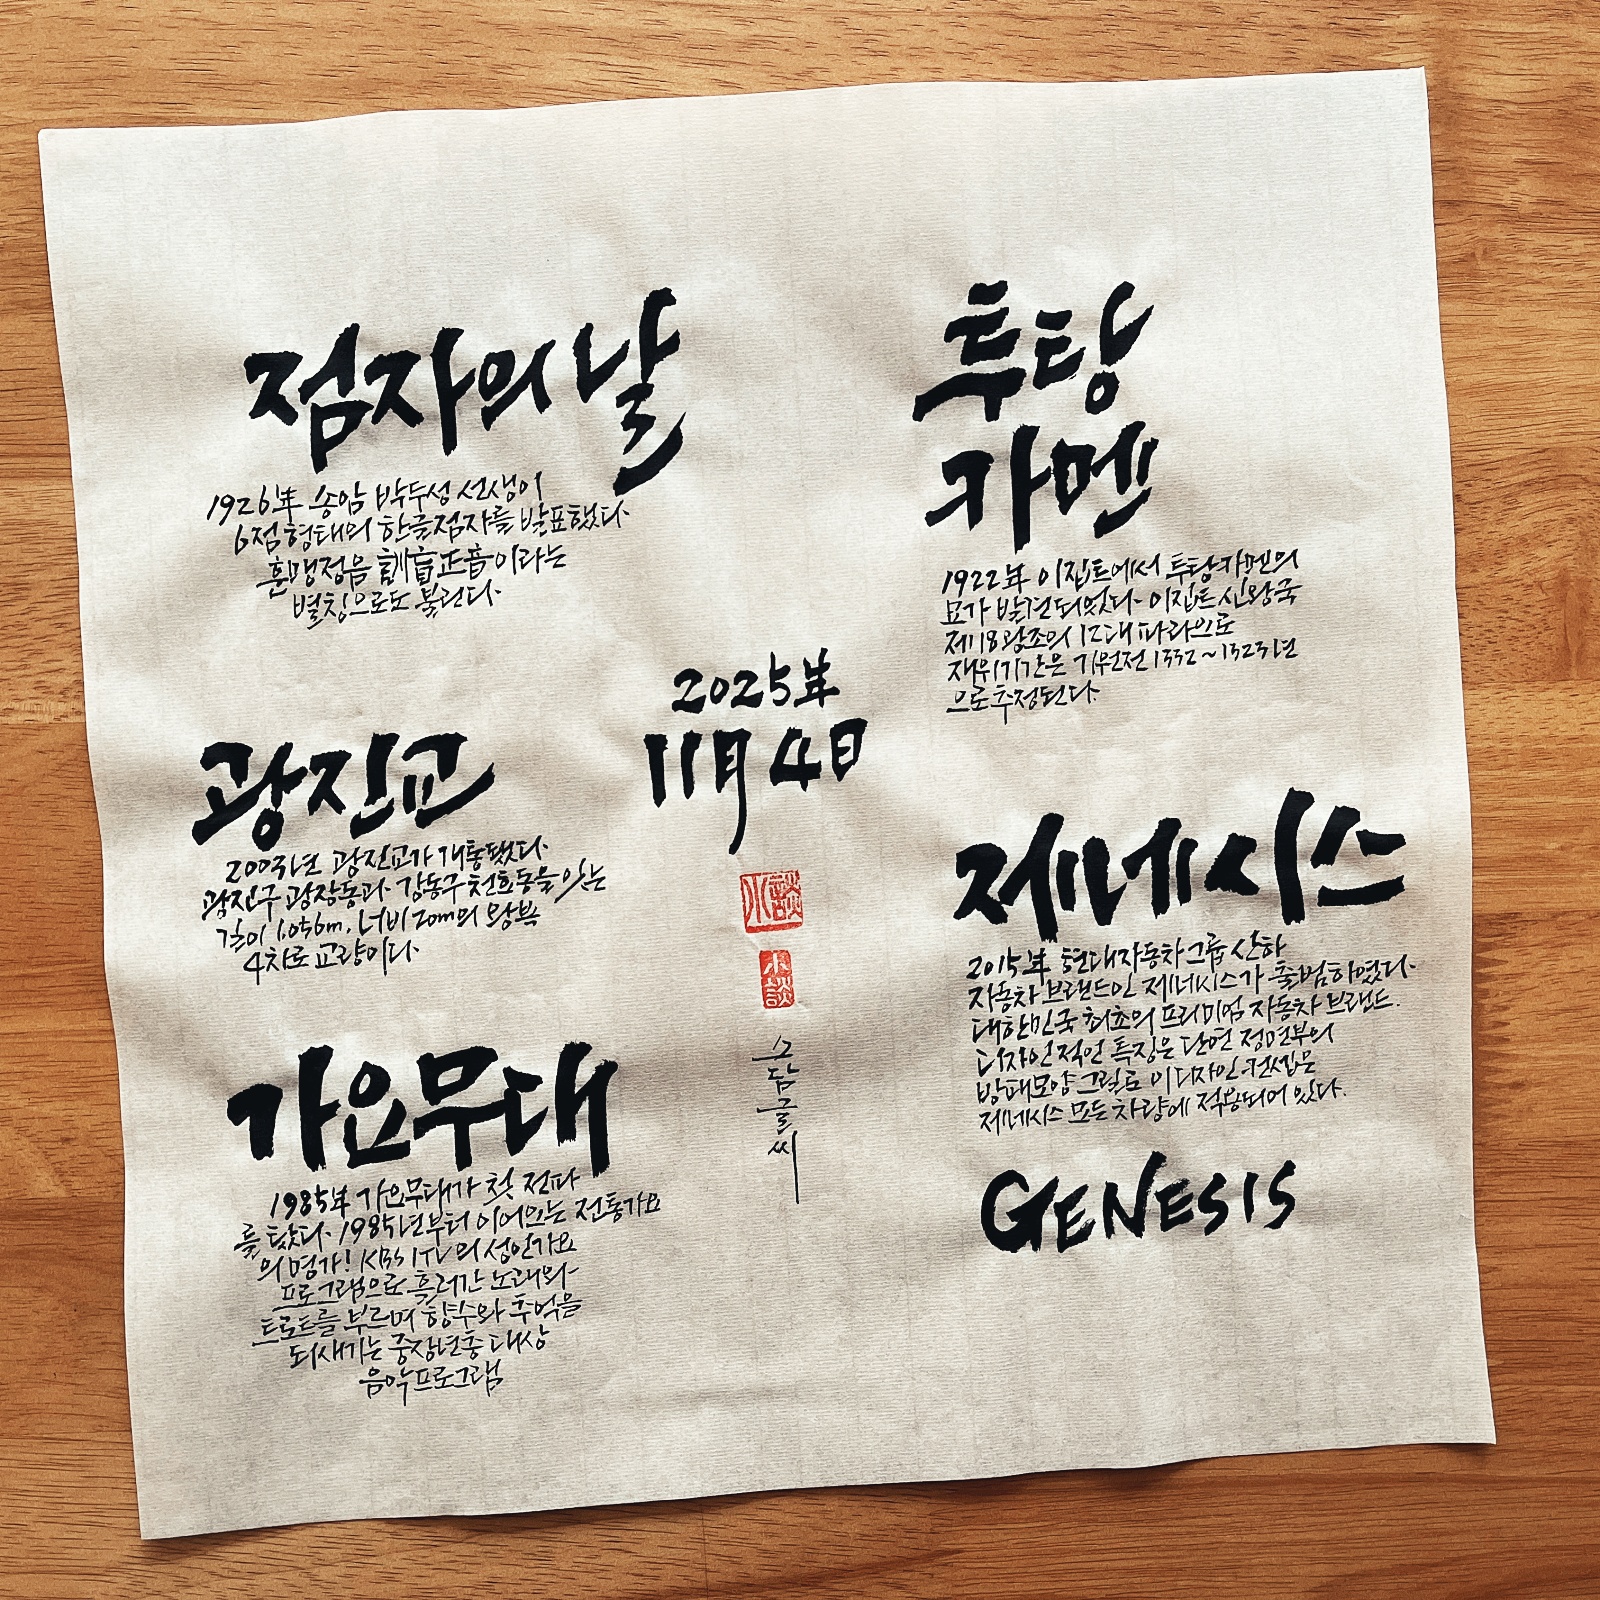 점자의 날
1926年 송암 박두성 선생이
6점 형태의 한글점자를 발표했다.
훈맹정음 訓盲正音이라는
별칭으로도 불린다.
투탕
카멘
1922年 이집트에서 투탕카멘의
묘가 발견되었다. 이집트 신왕국
제18왕조의 12대 파라오로
재위기간은 기원전 1332~1323년
으로 추정된다.
2025年
11月 4日
광진교
2003년 광진교가 개통됐다.
광진구 광장동과 강동구 천호동을 잇는
길이 1,056m, 너비 20m의 왕복
4차로 교량이다.
제네시스
2015年 현대자동차그룹 산하
자동차 브랜드인 제네시스가 출범하였다.
대한민국 최초의 프리미엄 자동차 브랜드.
디자인적인 특징은 단연 정면부의
방패모양 그릴로 이 디자인 컨셉은
제네시스 모든 차량에 적용되어 있다.
GENESIS
小談
小談
소담글씨
가요무대
1985年 가요무대가 첫 전파
를 탔다. 1985년부터 이어오는 전통가요
의 명가! KBS 1TV의 성인가요
프로그램으로 흘러간 노래와
트로트를 부르며 향수와 추억을
되새기는 중장년층 대상
음악프로그램